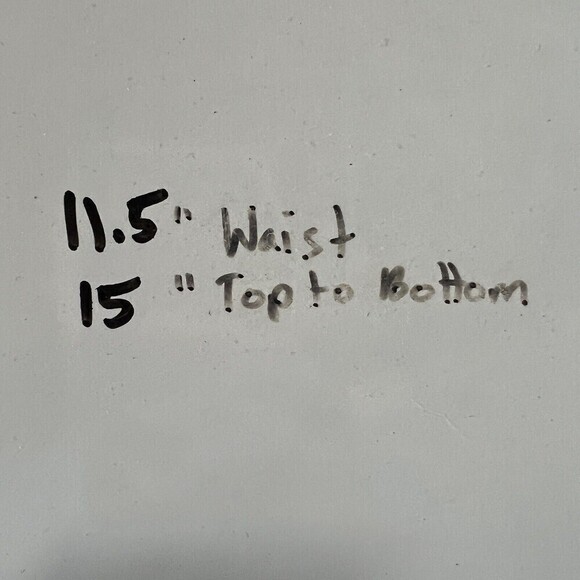 11.5" Waist
15 " Top to Bottom